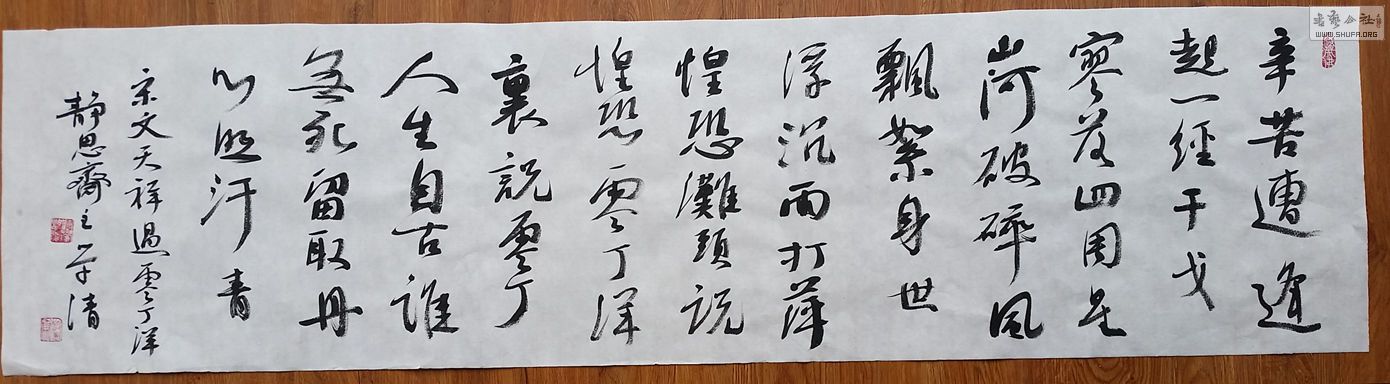 辛苦遭逢
起一經干戈
寥落四周星
山河破碎風
飄絮身世
浮沉雨打萍
惶恐灘頭說
惶恐零丁洋
裏說零丁
人生自古誰
無死留取丹
心照汗青
宋文天祥過零丁洋
静思齋主清
书艺公社
WWW.SHUFA.ORG